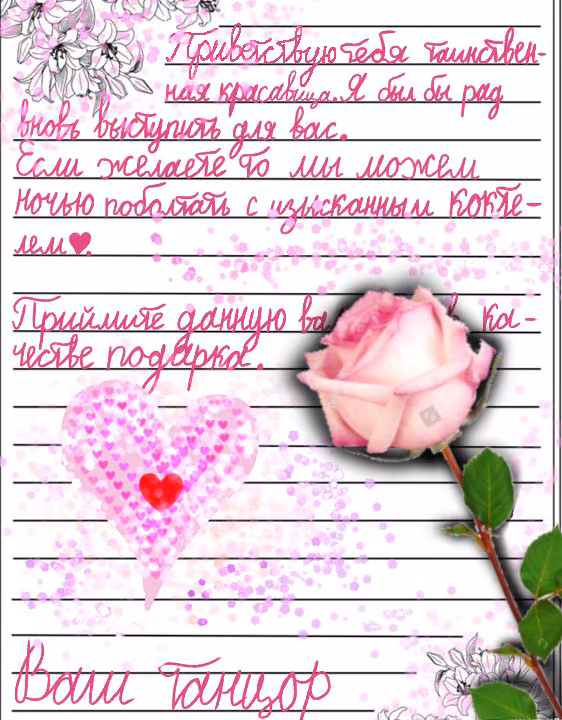 Приветствую тебя таинствен-
ная красавица. Я был бы рад
вновь выступить для вас.
Если желаете то мы можем
ночью поболтать с изысканным кокте-
лем♥.
Приймите данную ва в ка-
честве подарка.
Ваш танцор